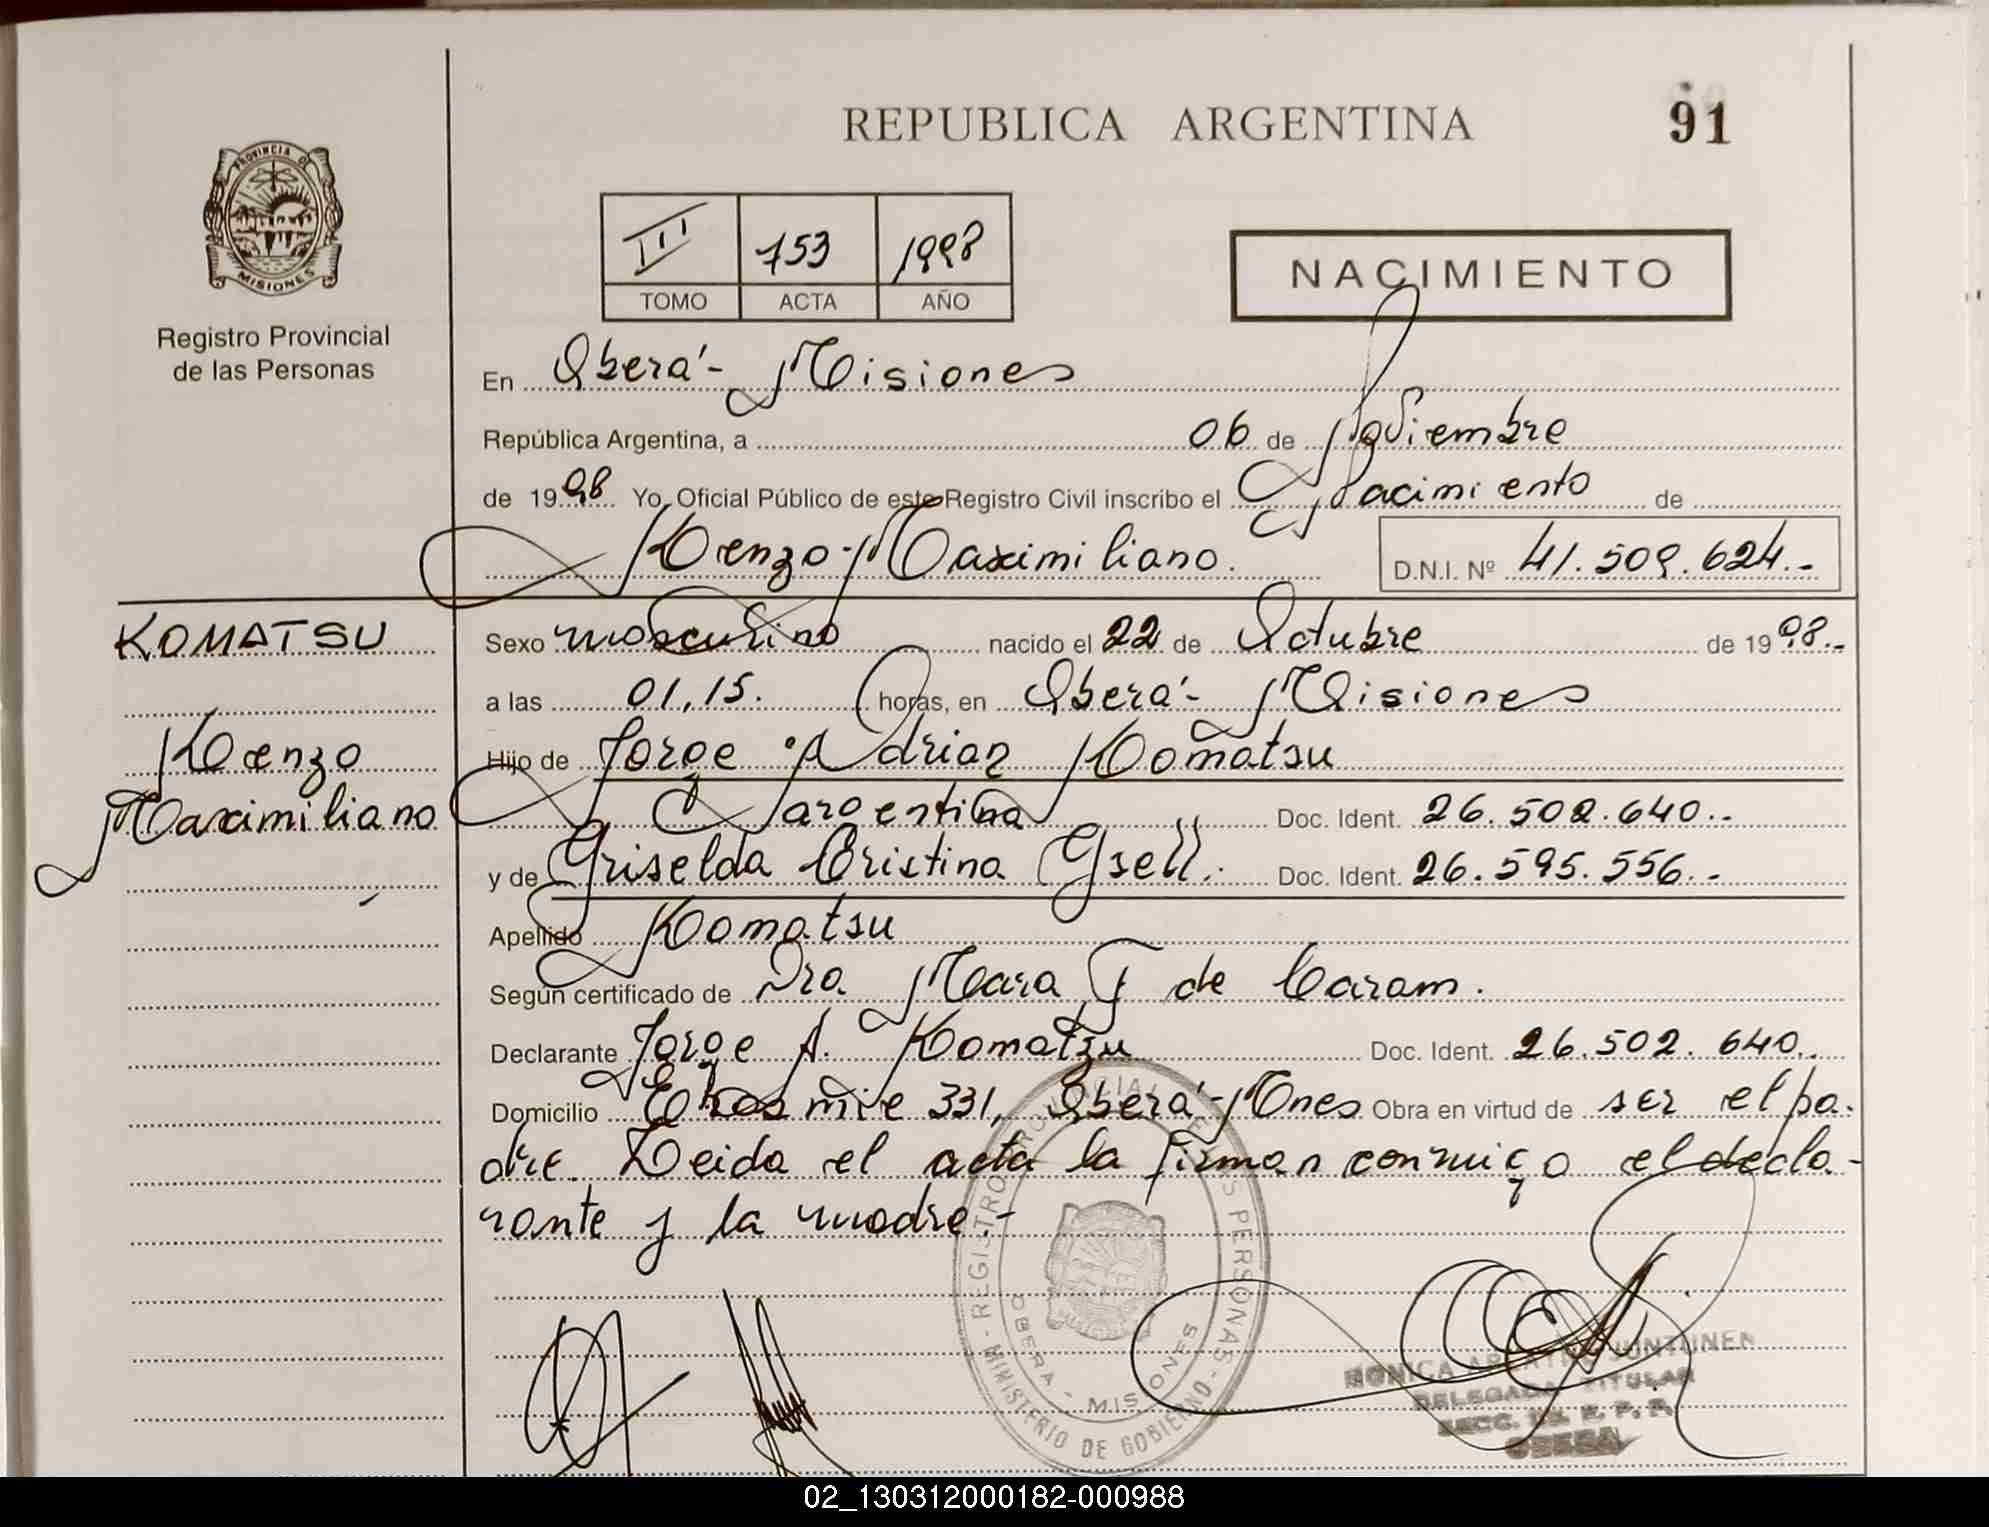 REPUBLICA ARGENTINA
91
PROVINCIA D
MISIONES
Registro Provincial
de las Personas
III 753 1998
TOMO ACTA AÑO
NACIMIENTO
En Oberá - Misiones
República Argentina, a 06 de Noviembre
de 1998 Yo, Oficial Público de este Registro Civil inscribo el Nacimiento de
Kenzo Maximiliano. D.N.I. Nº 41.509.624.-
KOMATSU
Kenzo
Maximiliano
Sexo masculino nacido el 22 de Octubre de 1998.-
a las 01,15. horas, en Oberá - Misiones
Hijo de Jorge Adrian Komatsu
argentina Doc. Ident. 26.502.640.-
y de Griselda Cristina Gsell. Doc. Ident. 26.595.556.-
Apellido Komatsu
Según certificado de Dra. Mara F de Caram.
Declarante Jorge A. Komatzu Doc. Ident. 26.502.640.
Domicilio 331, Oberá - Mnes Obra en virtud de ser el pa-
dre. Leida el acta la firman conmigo el decla-
rante y la madre.-
REGISTRO PROVINCIAL DE LAS PERSONAS - MINISTERIO DE GOBIERNO -
OBERA - MISIONES
MONICA JUNTUNEN
DELEGADA TITULAR
SECC. R. P. P.
OBERA
02_130312000182-000988